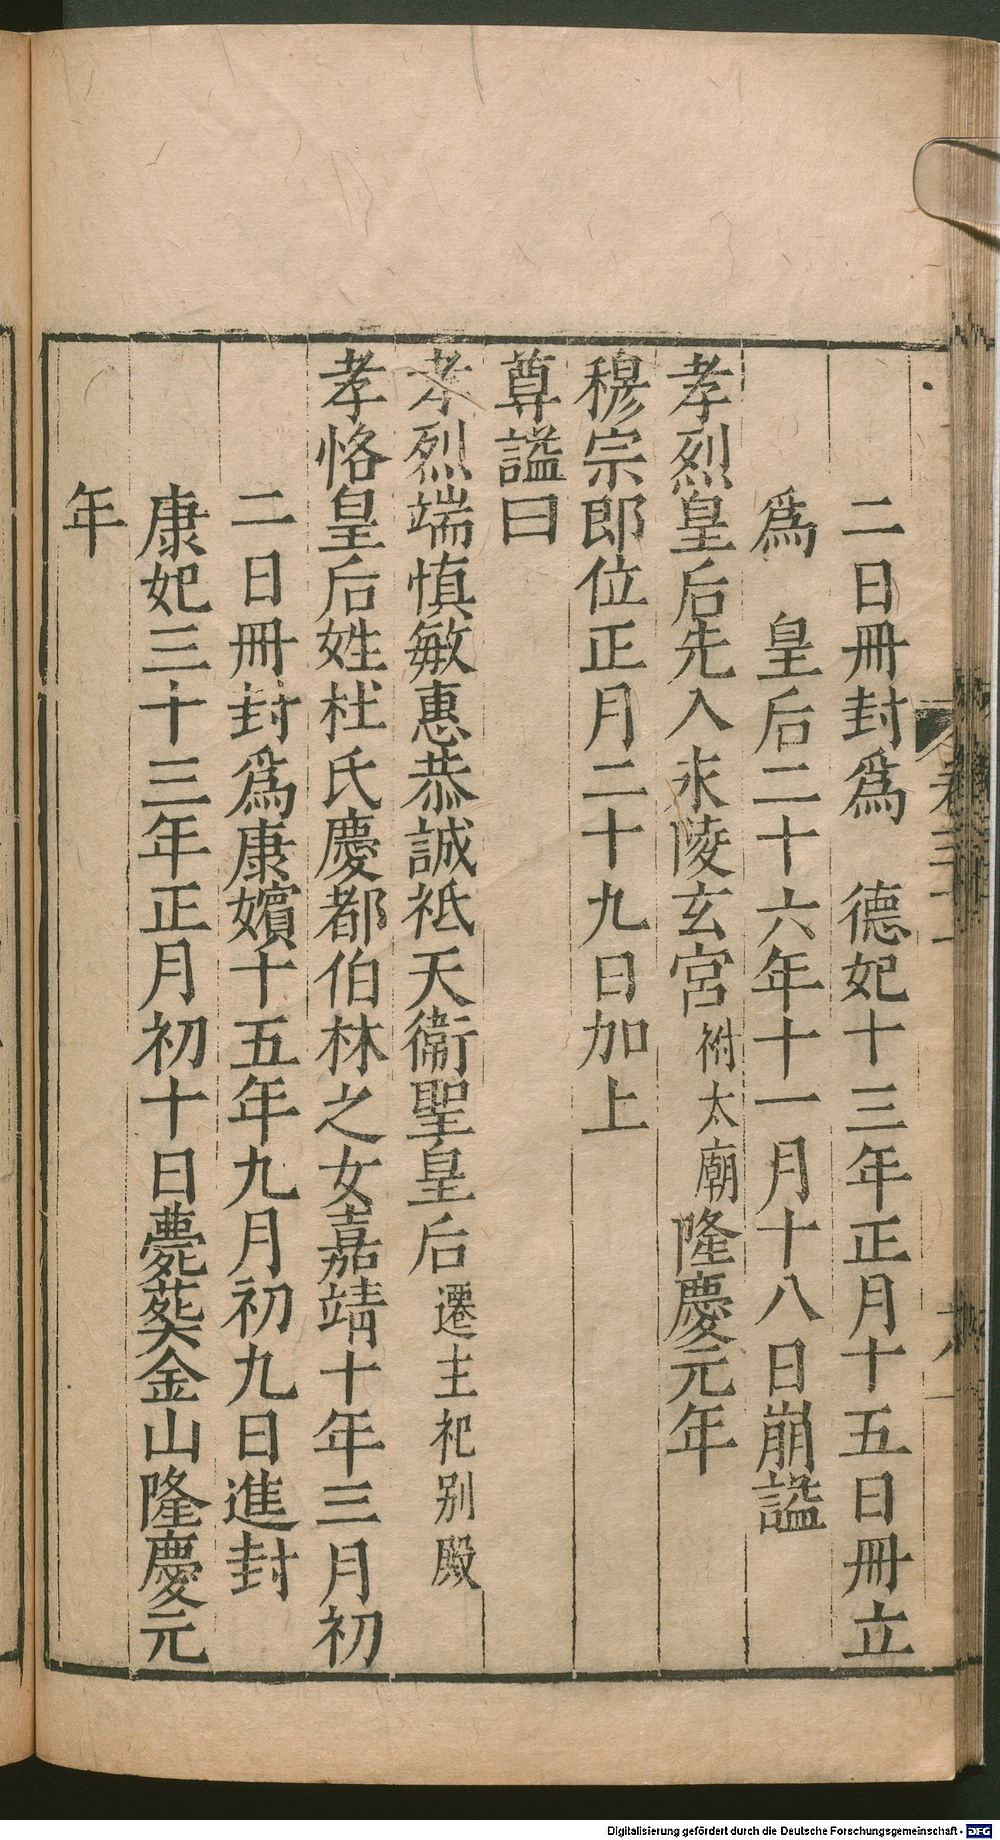 二日冊封爲　德妃十三年正月十五日冊立
爲　皇后二十六年十一月十八日崩謚
孝烈皇后先入永陵玄宮祔太廟隆慶元年
穆宗郎位正月二十九日加上
尊謚曰
孝烈端慎敏惠恭誠祗天衞聖皇后遷主祀别殿
孝恪皇后姓杜氏慶都伯林之女嘉靖十年三月初
二日冊封爲康嬪十五年九月初九日進封
康妃三十三年正月初十日薨葬金山隆慶元
年
Digitalisierung gefördert durch die Deutsche Forschungsgemeinschaft - DFG